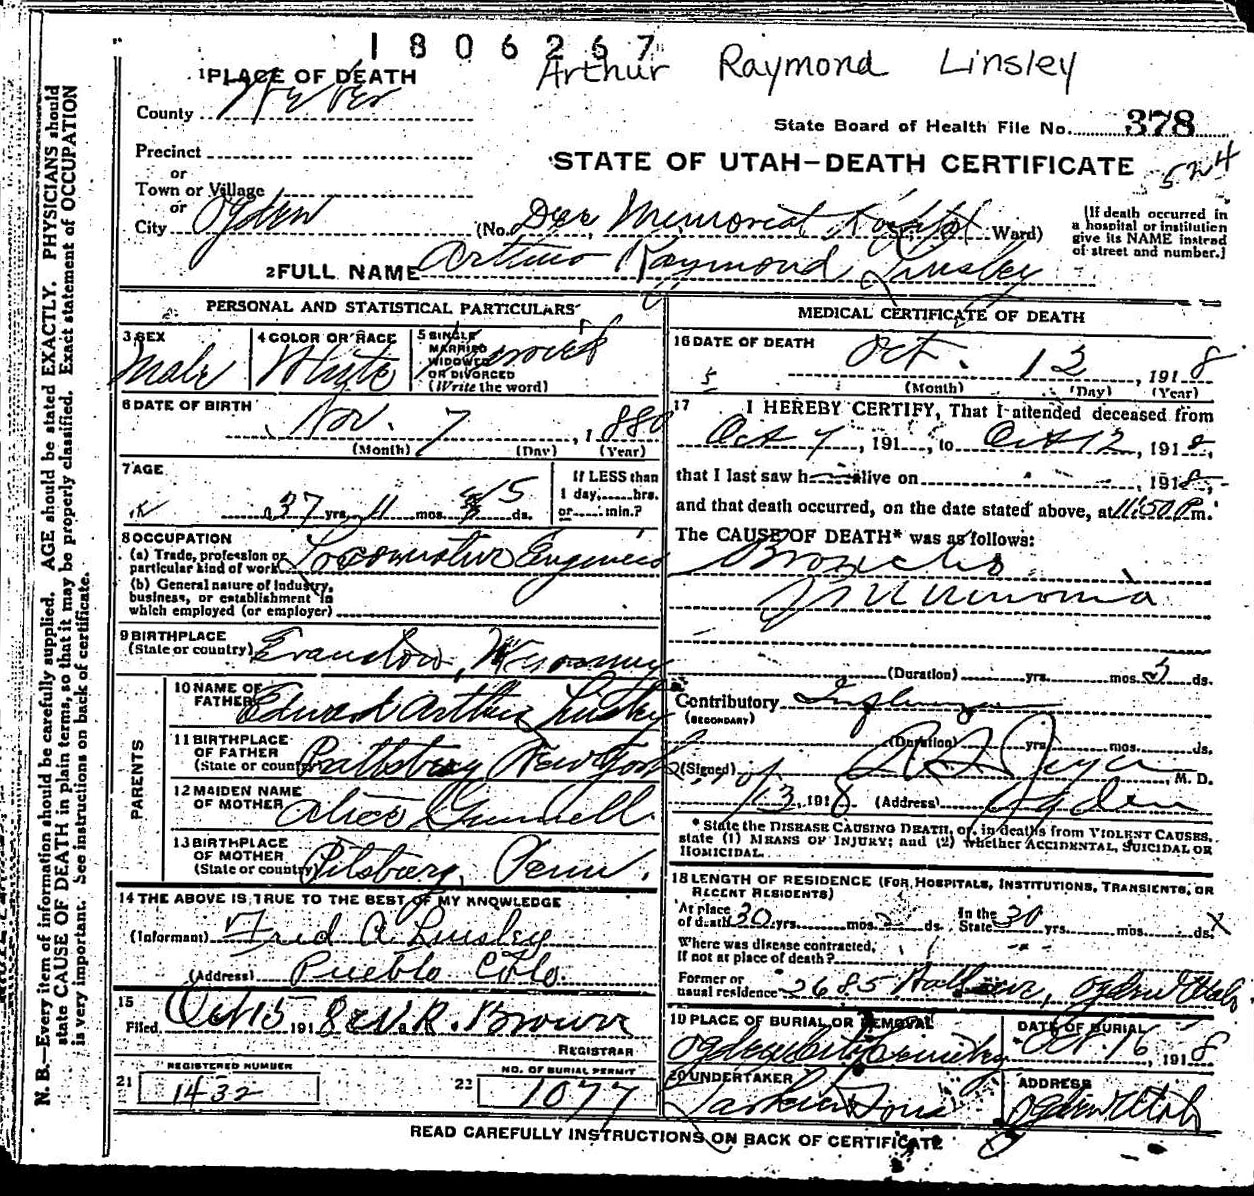 1806267
Arthur Raymond Linsley
1 PLACE OF DEATH
County Weber
State Board of Health File No. 378
Precinct
STATE OF UTAH—DEATH CERTIFICATE
524
or
Town or Village
or
City Ogden (No. Dee Memorial Hospital Ward)
(If death occurred in
a hospital or institution
give its NAME instead
of street and number.)
2 FULL NAME Arthur Raymond Linsley
PERSONAL AND STATISTICAL PARTICULARS
3 SEX
Male
4 COLOR OR RACE
White
5 SINGLE
MARRIED
WIDOWED
OR DIVORCED
(Write the word)
6 DATE OF BIRTH
Nov. 7, 1880
(Month) (Day) (Year)
7 AGE
37 yrs. 11 mos. 5 ds.
If LESS than
1 day, hrs.
or min.?
8 OCCUPATION
(a) Trade, profession or
particular kind of work Locomotive Engineer
(b) General nature of Industry,
business, or establishment in
which employed (or employer)
9 BIRTHPLACE
(State or country) Evanston, Wyoming
PARENTS
10 NAME OF
FATHER Edward Arthur Linsley
11 BIRTHPLACE
OF FATHER
(State or country) Prattsburg New York
12 MAIDEN NAME
OF MOTHER Alice Gunnell
13 BIRTHPLACE
OF MOTHER
(State or country) Pitsburg, Penn.
14 THE ABOVE IS TRUE TO THE BEST OF MY KNOWLEDGE
(Informant) Fred A Linsley
(Address) Pueblo Colo.
15
Filed Oct 15 1918 R. Brown
REGISTRAR
21
REGISTERED NUMBER
1432
22
NO. OF BURIAL PERMIT
1077
MEDICAL CERTIFICATE OF DEATH
16 DATE OF DEATH
Oct. 12, 1918
5
(Month) (Day) (Year)
17 I HEREBY CERTIFY, That I attended deceased from
Oct 7, 191, to Oct 12, 1918,
that I last saw h alive on , 1918,
and that death occurred, on the date stated above, at 11:50 P.m.
The CAUSE OF DEATH* was as follows:
Broncho
Pneumonia
(Duration) yrs. mos. 5 ds.
Contributory Influenza
(SECONDARY)
(Duration) yrs. mos. ds.
(Signed) M. D.
13, 1918 (Address) Ogden
* State the DISEASE CAUSING DEATH, or, in deaths from VIOLENT CAUSES,
state (1) MEANS OF INJURY; and (2) whether ACCIDENTAL, SUICIDAL OR
HOMICIDAL.
18 LENGTH OF RESIDENCE (FOR HOSPITALS, INSTITUTIONS, TRANSIENTS, OR
RECENT RESIDENTS)
At place
of death 30 yrs. mos. ds. In the
State 30 yrs. mos. ds. X
Where was disease contracted,
if not at place of death?
Former or
usual residence 2685 Ogden Utah
19 PLACE OF BURIAL OR REMOVAL
Ogden City Cemetery
DATE OF BURIAL
Oct. 16, 1918
20 UNDERTAKER
Larkin & Sons
ADDRESS
Ogden Utah
READ CAREFULLY INSTRUCTIONS ON BACK OF CERTIFICATE
N. B.—Every item of information should be carefully supplied. AGE should be stated EXACTLY. PHYSICIANS should
state CAUSE OF DEATH in plain terms, so that it may be properly classified. Exact statement of OCCUPATION
is very important. See instructions on back of certificate.